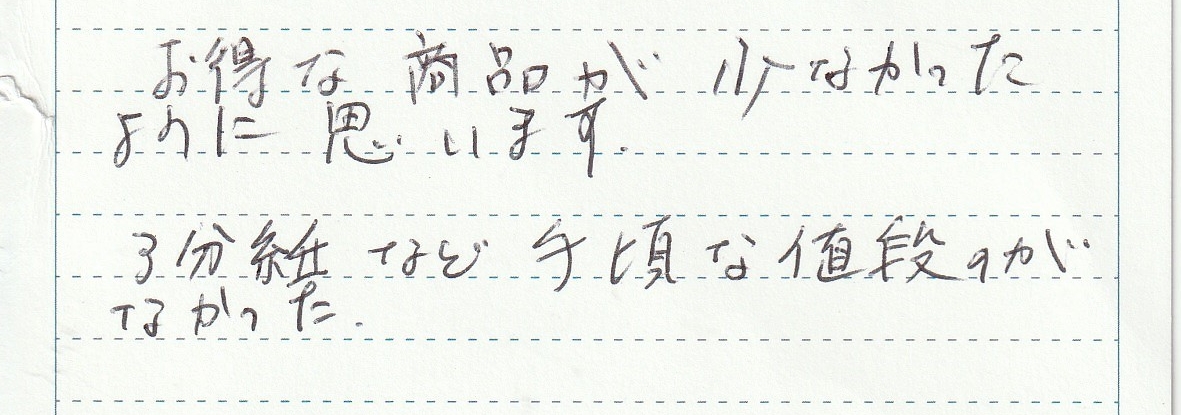 お得な商品が少なかった
ように思います.
3分紙など手頃な値段のが
なかった.